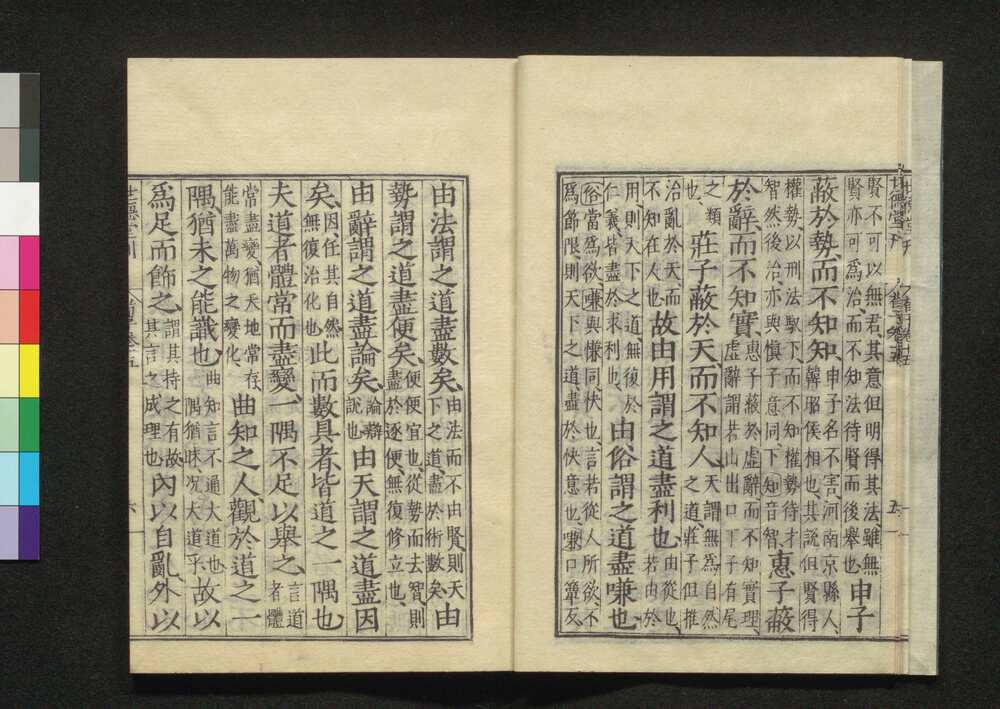 賢不可以無君其意但明得其法雖無
賢亦可為治而不知法待賢而後舉也
申子
蔽於勢而不知知
申子名不害河南京縣人
韓昭侯相也其說但賢得
權勢以刑法馭下而不知權勢待才
智然後治亦與慎子意同下知音智
惠子蔽
於辭而不知實
惠子蔽於虛辭而不知實理
虛辭謂若山出口丁子有尾
之類
也
莊子蔽於天而不知人
天謂無為自然
之道莊子但推
治亂於天而
不知在人也
故由用謂之道盡利也
由從也
若由於
用則天下之道無復
仁義皆盡於求利也
由俗謂之道盡嗛也
俗當為欲嗛與慊同快也言若從人所欲不
為節限則天下之道盡於快意也嗛口簟反
由法謂之道盡數矣
由法而不由賢則天
下之道盡於術數矣
由
勢謂之道盡便矣
便便宜也從勢而去智則
盡於逐便無復修立也
由辭謂之道盡論矣
論辯
說也
由天謂之道盡因
矣
因任其自然
無復治化也
此而數具者皆道之一隅也
夫道者體常而盡變一隅不足以舉之
言道
者體
常盡變猶天地常存
能盡萬物之變化
曲知之人觀於道之一
隅猶未之能識也
曲知言不通大道也
隅猶昧况大道乎
故以
為足而飾之
謂其持之有故
其言之成理也
內以自亂外以